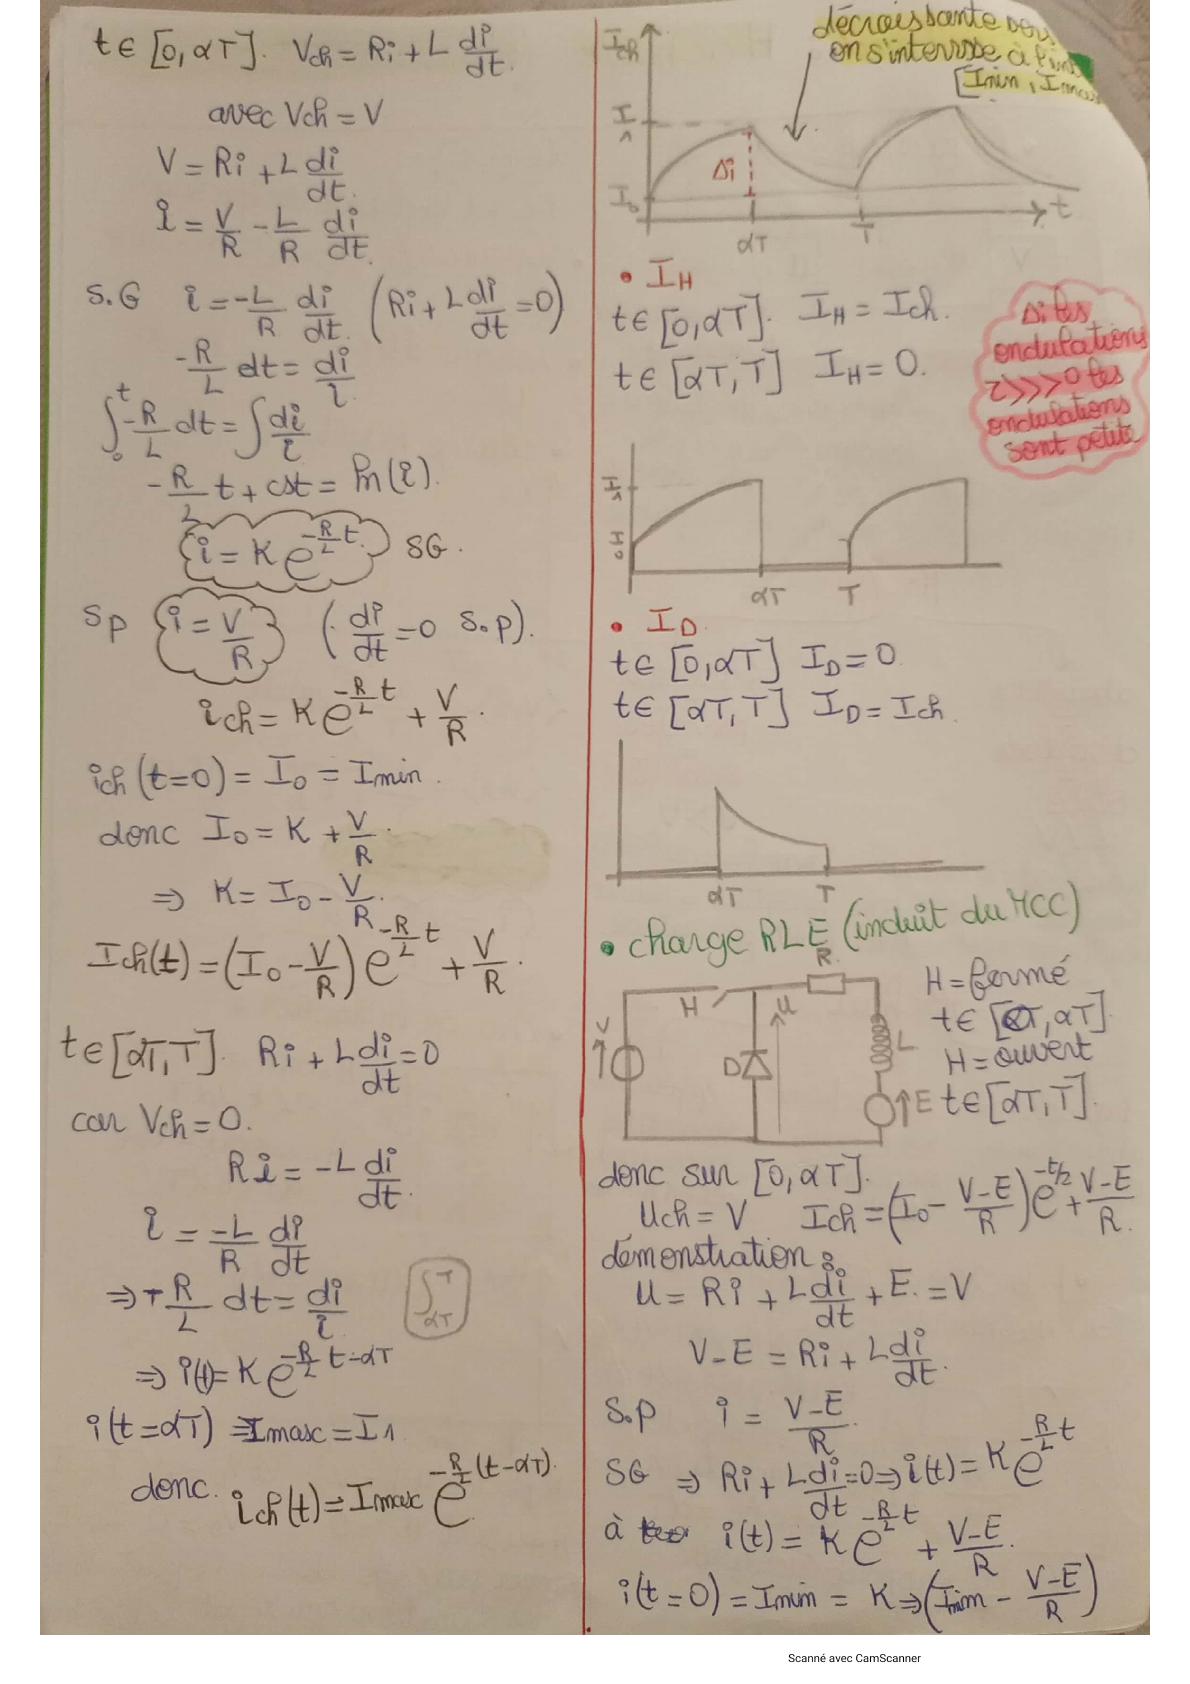 t∈ [0, αT]. Vch = Ri + L di/dt.
avec Vch = V
V = Ri + L di/dt.
i = V/R - L/R di/dt.
S.G i = -L/R di/dt. (Ri + L di/dt = 0)
-R/L dt = di/i.
∫₀ᵗ -R/L dt = ∫ di/i
-R/L t + cst = ln(i).
i = K e^(-R/L t.) SG.
Sp i = V/R (di/dt = 0 S.p).
ich = K e^(-R/L t) + V/R.
ich (t=0) = I0 = Imin.
donc I0 = K + V/R.
⇒ K = I0 - V/R.
Ich(t) = (I0 - V/R) e^(-R/L t) + V/R.
t∈ [αT, T]. Ri + L di/dt = 0
car Vch = 0.
Ri = -L di/dt.
i = -L/R di/dt
⇒ -R/L dt = di/i.
∫ T αT
⇒ i(t) = K e^(-R/L t-αT)
i(t=αT) = Imax = I1
donc. ich(t) = Imax e^(-R/L (t-αT)).
décroissante
on s'interesse à
[Imin, Imax
Ich
I1
Δi
I0
αT T t
• IH
t∈ [0, αT]. IH = Ich.
t∈ [αT, T] IH = 0.
Δi les
ondulations
τ>>>>0 les
ondulations
sont petite
I1
I0
αT T
• ID.
t∈ [0, αT] ID = 0
t∈ [αT, T] ID = Ich.
αT T
• charge RLE (induit du MCC)
R
H
V
D
u
L
E
H = fermé
t∈ [0T, αT].
H = ouvert
t∈ [αT, T].
donc sur [0, αT].
Uch = V Ich = (I0 - V-E/R) e^(-t/2) + V-E/R.
démonstration :
U = Ri + L di/dt + E. = V
V-E = Ri + L di/dt.
S.p i = V-E/R.
SG ⇒ Ri + L di/dt = 0 ⇒ i(t) = K e^(-R/L t)
à i(t) = K e^(-R/L t) + V-E/R.
i(t=0) = Imin = K ⇒ (Imin - V-E/R)
Scanné avec CamScanner